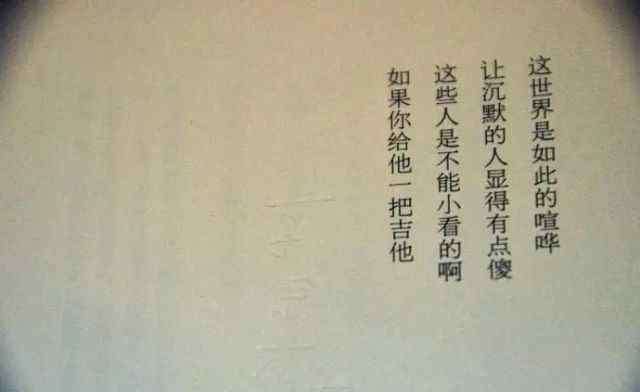 这世界是如此的喧哗
让沉默的人显得有点傻
这些人是不能小看的啊
如果你给他一把吉他